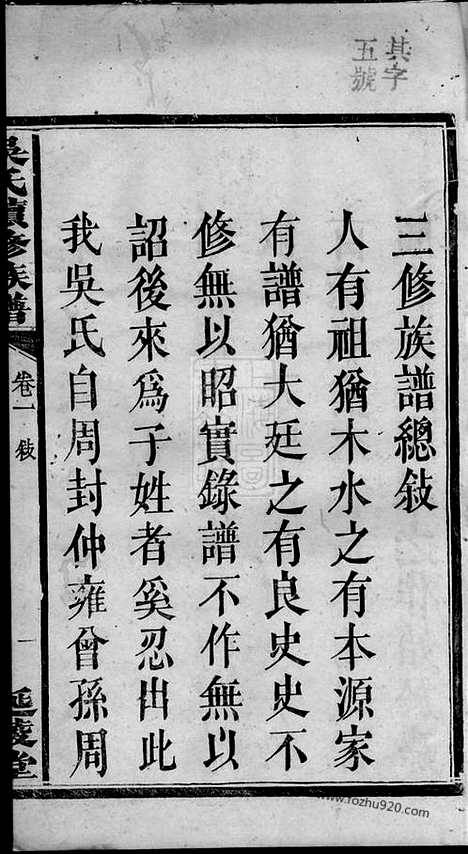 其字
五號
三修族譜總敍
人有祖猶木水之有本源家
有譜猶大廷之有良史史不
修無以昭實錄譜不作無以
詔後來爲子姓者奚忍出此
我吳氏自周封仲雍曾孫周
吳氏續修族譜
卷一 敍
一
延陵堂
www.fozhu920.com